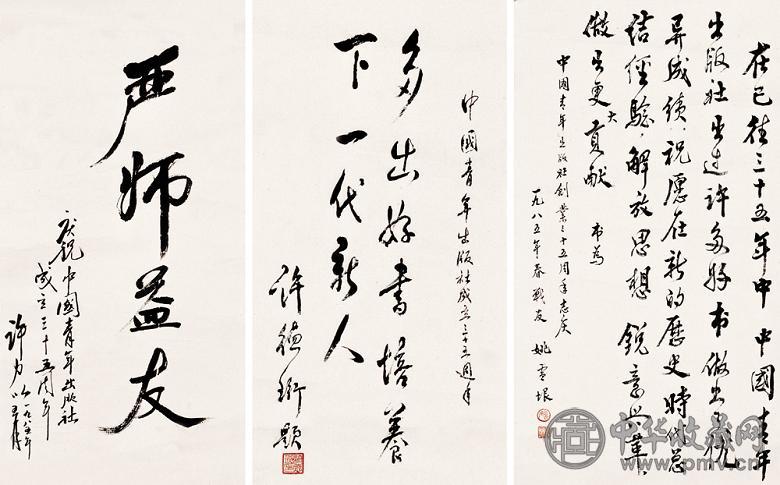 严师益友
庆祝中国青年出版社
成立三十五周年
许力以一九八五年
中國青年出版社成立三十五週年
多出好書培養
下一代新人
許德珩題
在已往三十五年中中國青年
出版社出过许多好书做出了优
异成绩，祝愿在新的歷史时期总
结經驗，解放思想，锐意兴革，
做出更大贡献 书为
中國青年出版社创業三十五周年志庆
一九八五年春 战友 姚雪垠
中华收藏网
www.pmv.cn